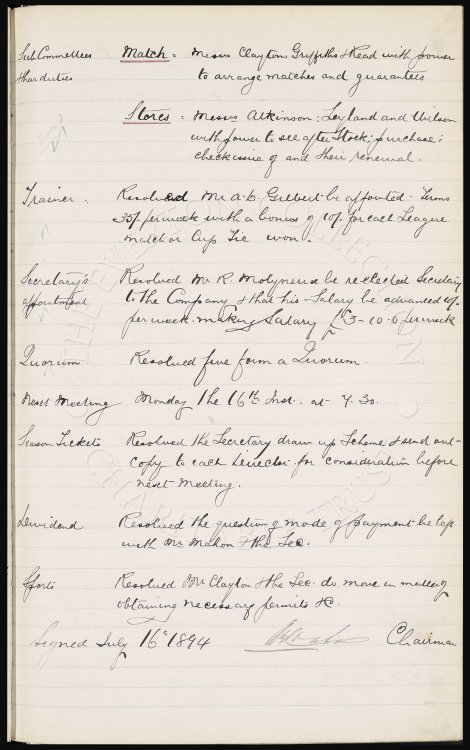 Sub Committees Match : Messrs Clayton Griffiths & Read with power
& their duties to arrange matches and guarantees
Stores : Messrs Atkinson : Leyland and Wilson
with power to see after Stock : purchase :
check issue of and their renewal.
Trainer . Resolved Mr A. D. Gilbert be appointed - Terms
35/- per week with a bonus of 10/- for each League
match or Cup Tie won -
Secretary's Resolved Mr R. Molyneux be reelected Secretary
appointment to the Company & that his Salary be advanced
per week - making Salary £3-10-0 per week
Quorum Resolved five form a Quorum .
Next Meeting Monday the 16th Inst. at 7.30.
Season Tickets Resolved the Secretary draw up Scheme & send out
copy to each Director for consideration before
next Meeting.
Dividend Resolved the question of mode of payment be left
with Mr Mahon & the Sec.
Sports Resolved Mr Clayton & the Sec. do move in matter of
obtaining necessary permits &c.
Signed July 16th 1894 Chairman
THE EVERTON COLLECTION
CHARITABLE TRUST